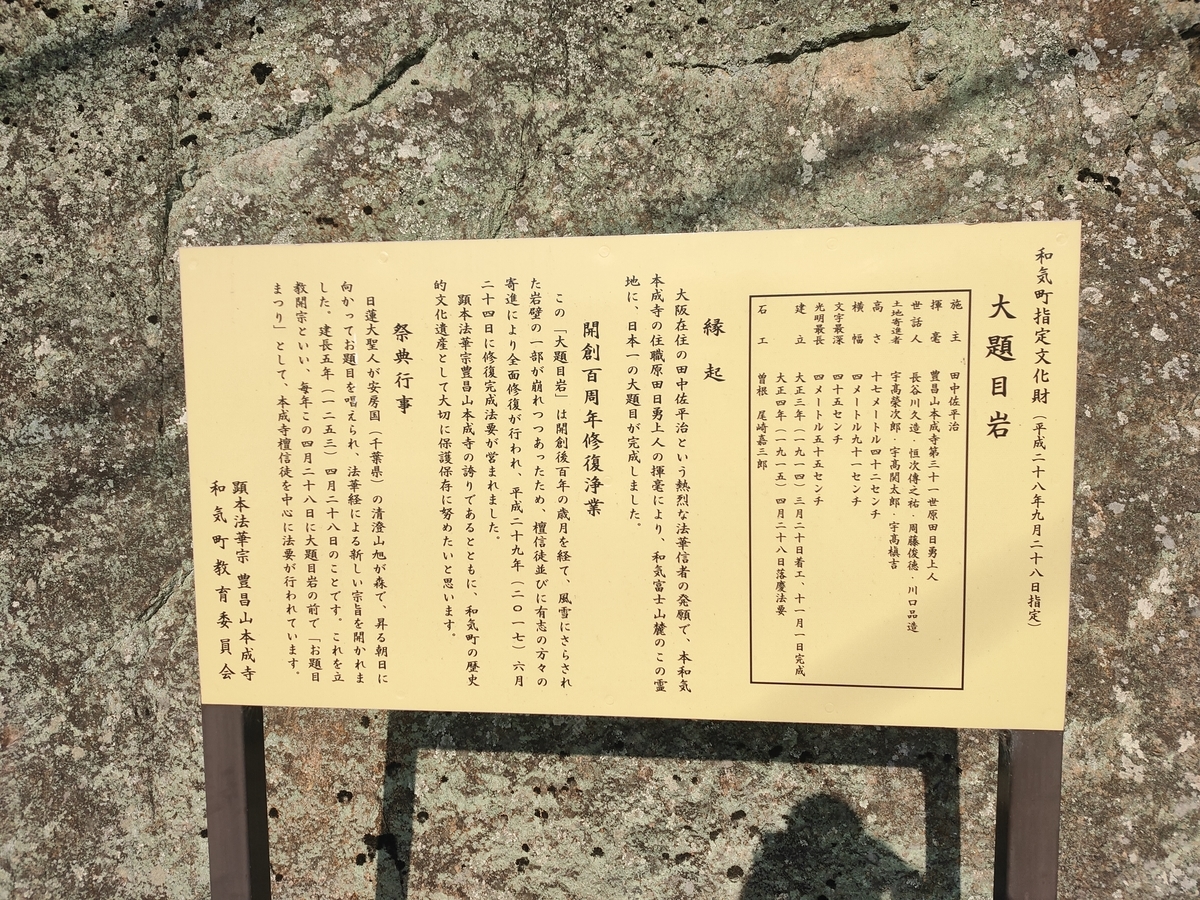 和気町指定文化財(平成二十八年九月二十八日指定)
大題目岩
施主 田中佐平治
揮毫 豊昌山本成寺第三十一世原田日勇上人
世話人 長谷川久造・恒次傳之祐・周藤俊德・川口品造
土地寄進者 宇高榮次郎・宇高関太郎・宇高槇吉
高さ 十七メートル四十二センチ
横幅 四メートル九十一センチ
文字最深 四十五センチ
光明最長 四メートル五十五センチ
建立 大正三年(一九一四)三月二十日着工、十一月一日完成
大正四年(一九一五)四月二十八日落慶法要
石工 曽根 尾崎嘉三郎
縁起
大阪在住の田中佐平治という熱烈な法華信者の発願で、本和気
本成寺の住職原田日勇上人の揮毫により、和気富士山麓のこの霊
地に、日本一の大題目が完成しました。
開創百周年修復浄業
この「大題目岩」は開創後百年の歳月を経て、風雪にさらされ
た岩壁の一部が崩れつつあったため、檀信徒並びに有志の方々の
寄進により全面修復が行われ、平成二十九年(二〇一七)六月
二十四日に修復完成法要が営まれました。
顕本法華宗豊昌山本成寺の誇りであるとともに、和気町の歴史
的文化遺産として大切に保護保存に努めたいと思います。
祭典行事
日蓮大聖人が安房国(千葉県)の清澄山旭が森で、昇る朝日に
向かってお題目を唱えられ、法華経による新しい宗旨を開かれま
した。建長五年(一二五三)四月二十八日のことです。これを立
教開宗といい、毎年この四月二十八日に大題目岩の前で「お題目
まつり」として、本成寺檀信徒を中心に法要が行われています。
顕本法華宗 豊昌山本成寺
和気町教育委員会